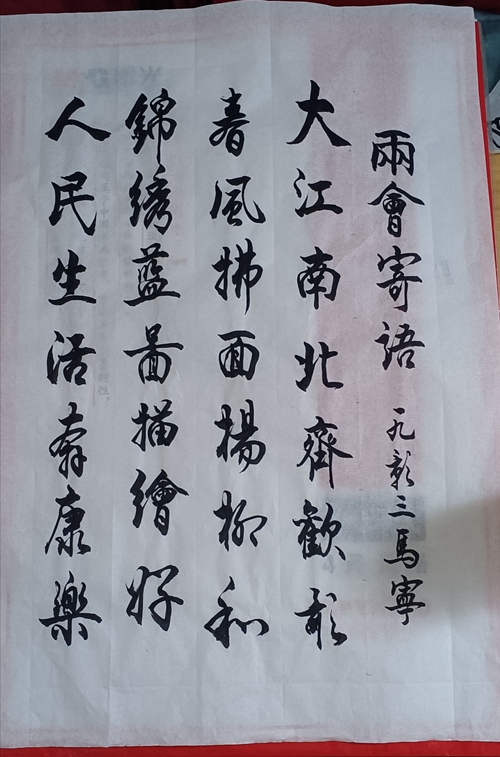 兩會寄語 三馬寧
大江南北齊歡歌
春風拂面楊柳和
錦綉藍啚描繪好
人民生活奔康樂